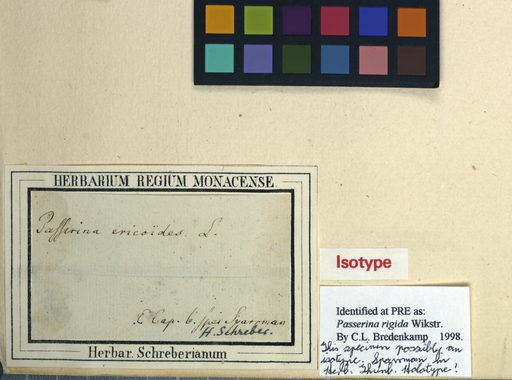 HERBARIUM REGIUM MONACENSE.
Passerina ericoides. L.
E Cap. b. spei Sparrman
H. Schreber.
Herbar. Schreberianum
Isotype
Identified at PRE as:
Passerina rigida Wikstr.
By C.L. Bredenkamp 1998.
This specimen possibly an
isotype. Sparrman in
Herb. Thunb. Holotype!